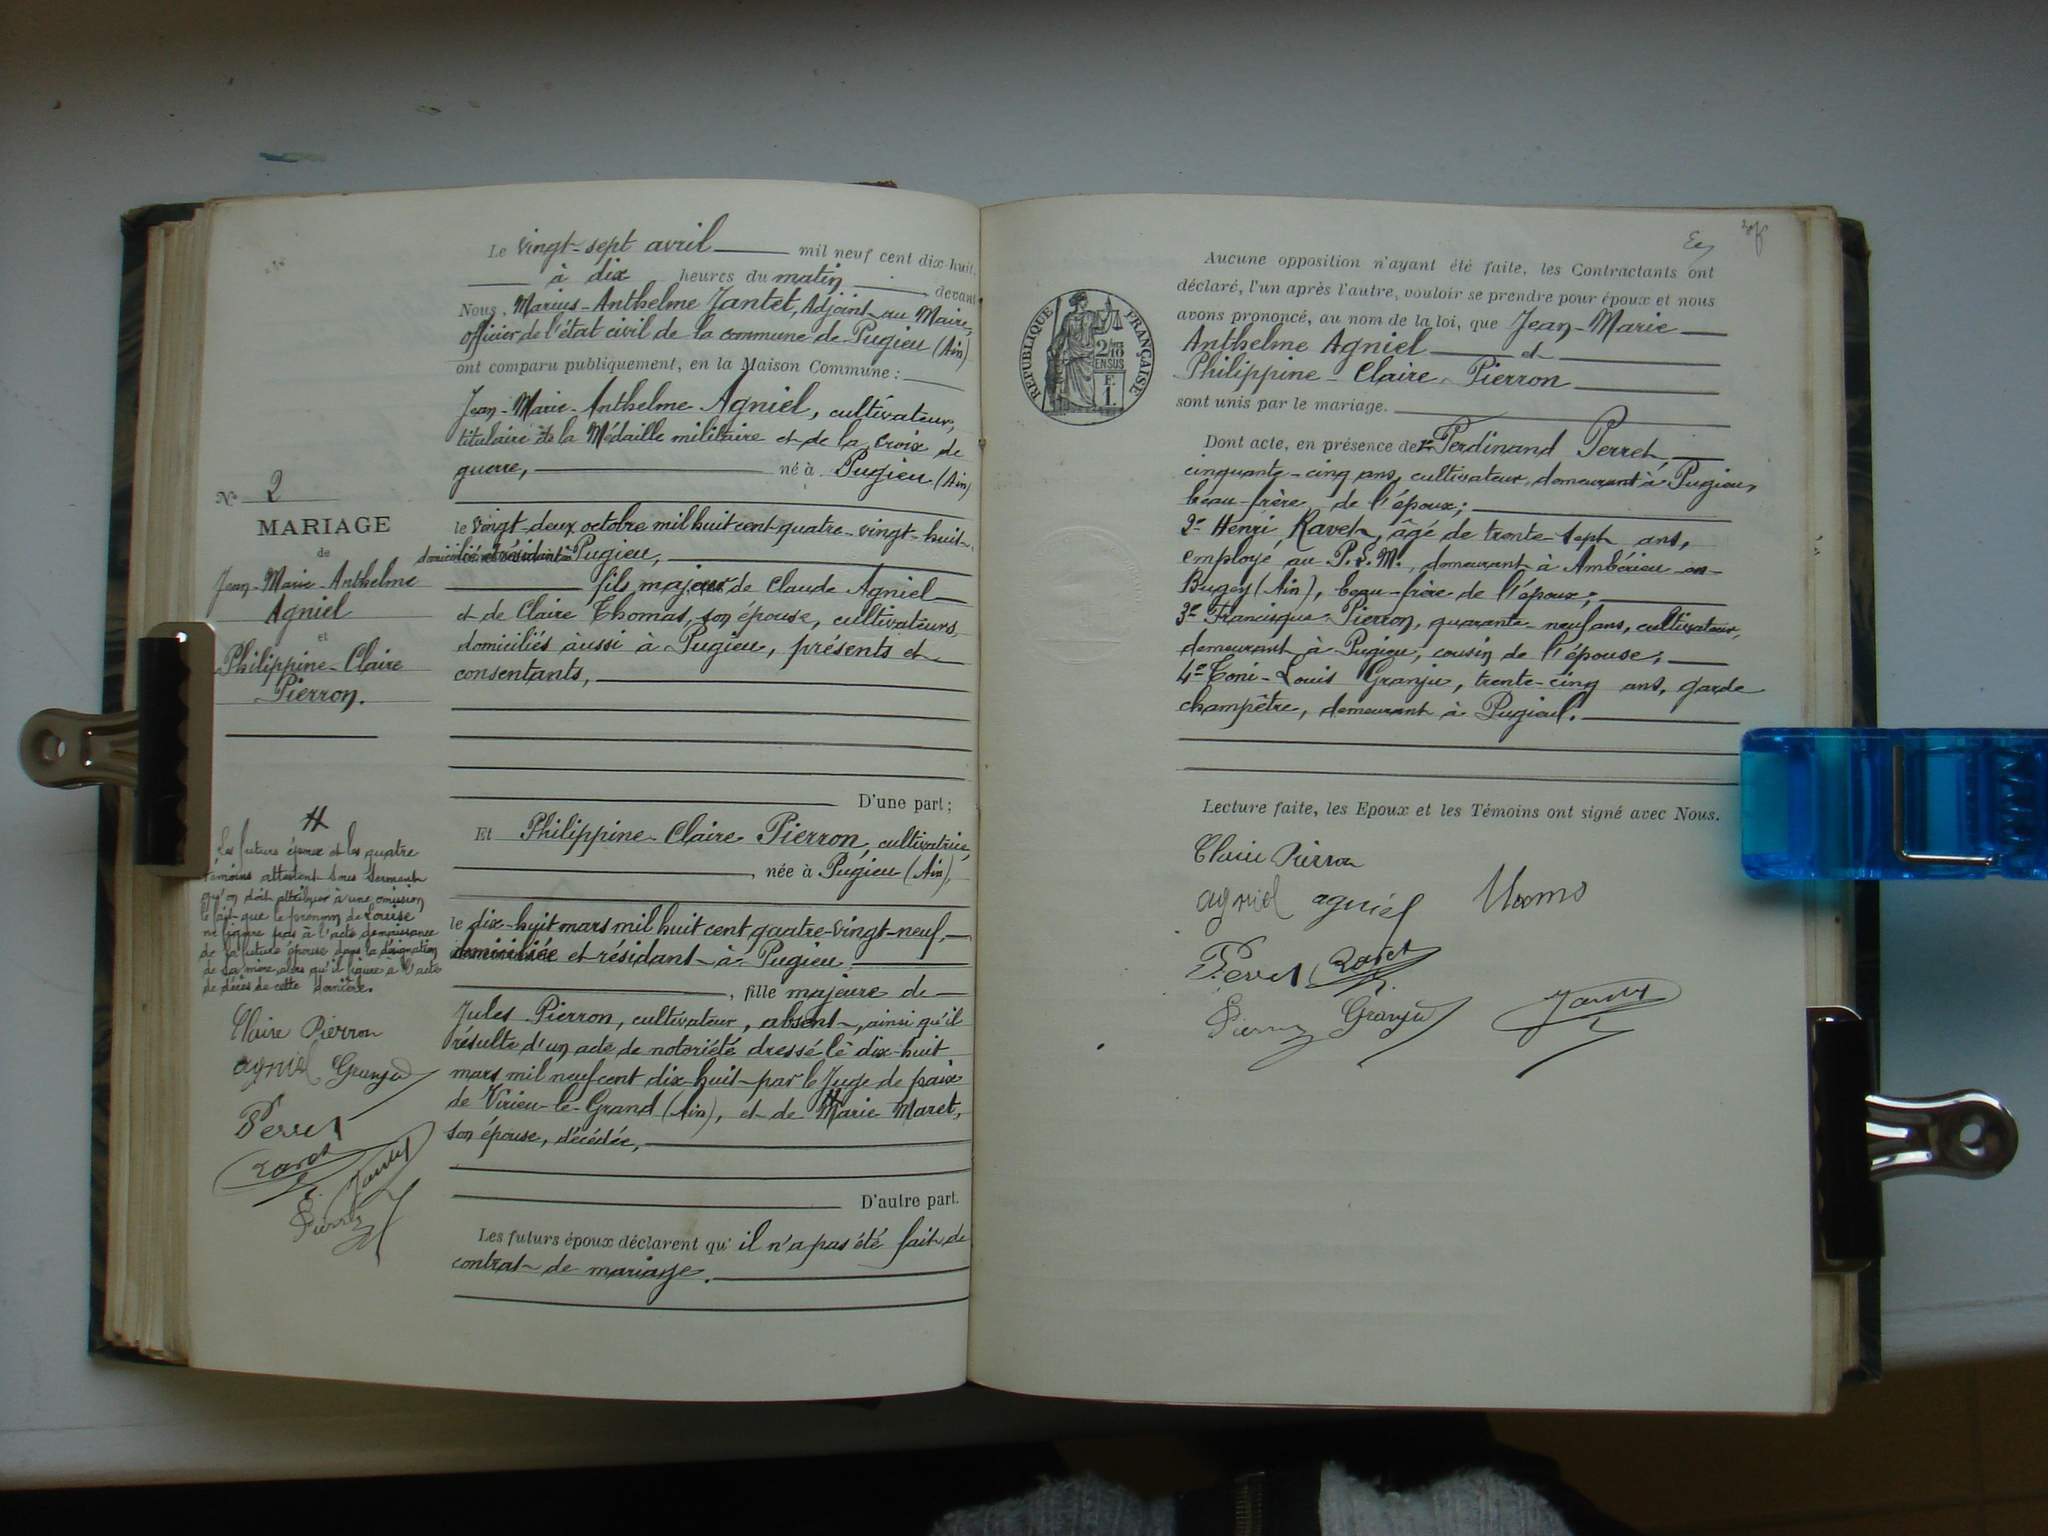 Le vingt-sept avril mil neuf cent dix-huit,
à dix heures du matin, devant
Nous, Marius-Anthelme Jantet, Adjoint au Maire,
officier de l'état civil de la commune de Pugieu (Ain)
ont comparu publiquement, en la Maison Commune :
Jean-Marie-Anthelme Agniel, cultivateur,
titulaire de la Médaille militaire et de la croix de
guerre, né à Pugieu (Ain)
le vingt-deux octobre mil huit cent quatre-vingt-huit,
domicilié et résidant à Pugieu,
fils majeur de Claude Agniel
et de Claire Thomas, son épouse, cultivateurs,
domiciliés aussi à Pugieu, présents et
consentants,
D'une part ;
Et Philippine-Claire Pierron, cultivatrice,
née à Pugieu (Ain),
le dix-huit mars mil huit cent quatre-vingt-neuf,
domiciliée et résidant à Pugieu
, fille majeure de
Jules Pierron, cultivateur, absent, ainsi qu'il
résulte d'un acte de notoriété dressé le dix-huit
mars mil neuf cent dix-huit par le Juge de paix
de Virieu-le-Grand (Ain), et de Marie Maret,
son épouse, décédée,
D'autre part.
Les futurs époux déclarent qu'il n'a pas été fait de
contrat de mariage.
N° 2
MARIAGE
de
Jean-Marie-Anthelme
Agniel
et
Philippine-Claire
Pierron.
Les futurs époux et les quatre
témoins attestent sous serment
qu'on doit attribuer à une omission
le fait que le prénom de Louise
ne figure pas à l'acte de naissance
de la future épouse dans la désignation
de sa mère, alors qu'il figure à l'acte
de décès de cette dernière.
Claire Pierron
agniel Granju
Perret
Ravet Jantet
Pierron
Aucune opposition n'ayant été faite, les Contractants ont
déclaré, l'un après l'autre, vouloir se prendre pour époux et nous
avons prononcé, au nom de la loi, que Jean-Marie
Anthelme Agniel et
Philippine-Claire Pierron
sont unis par le mariage.
RÉPUBLIQUE FRANÇAISE
2/10
EN SUS
F.
1.
Dont acte, en présence de 1° Ferdinand Perret,
cinquante-cinq ans, cultivateur, demeurant à Pugieu,
beau-frère de l'époux ;
2° Henri Ravet, âgé de trente-sept ans,
employé au P.L.M., demeurant à Ambérieu-en-
Bugey (Ain), beau-frère de l'époux ;
3° Francisque Pierron, quarante-neuf ans, cultivateur,
demeurant à Pugieu, cousin de l'épouse ;
4° Toni-Louis Granju, trente-cinq ans, garde
champêtre, demeurant à Pugieu.
Lecture faite, les Epoux et les Témoins ont signé avec Nous.
Claire Pierron
agniel agniel
Perret Ravet
Pierron Granju Jantet